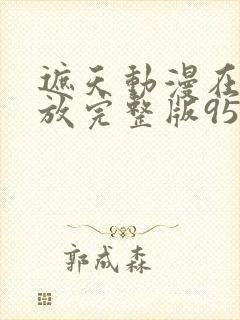 遮天動漫在
放完整版95
郭成森